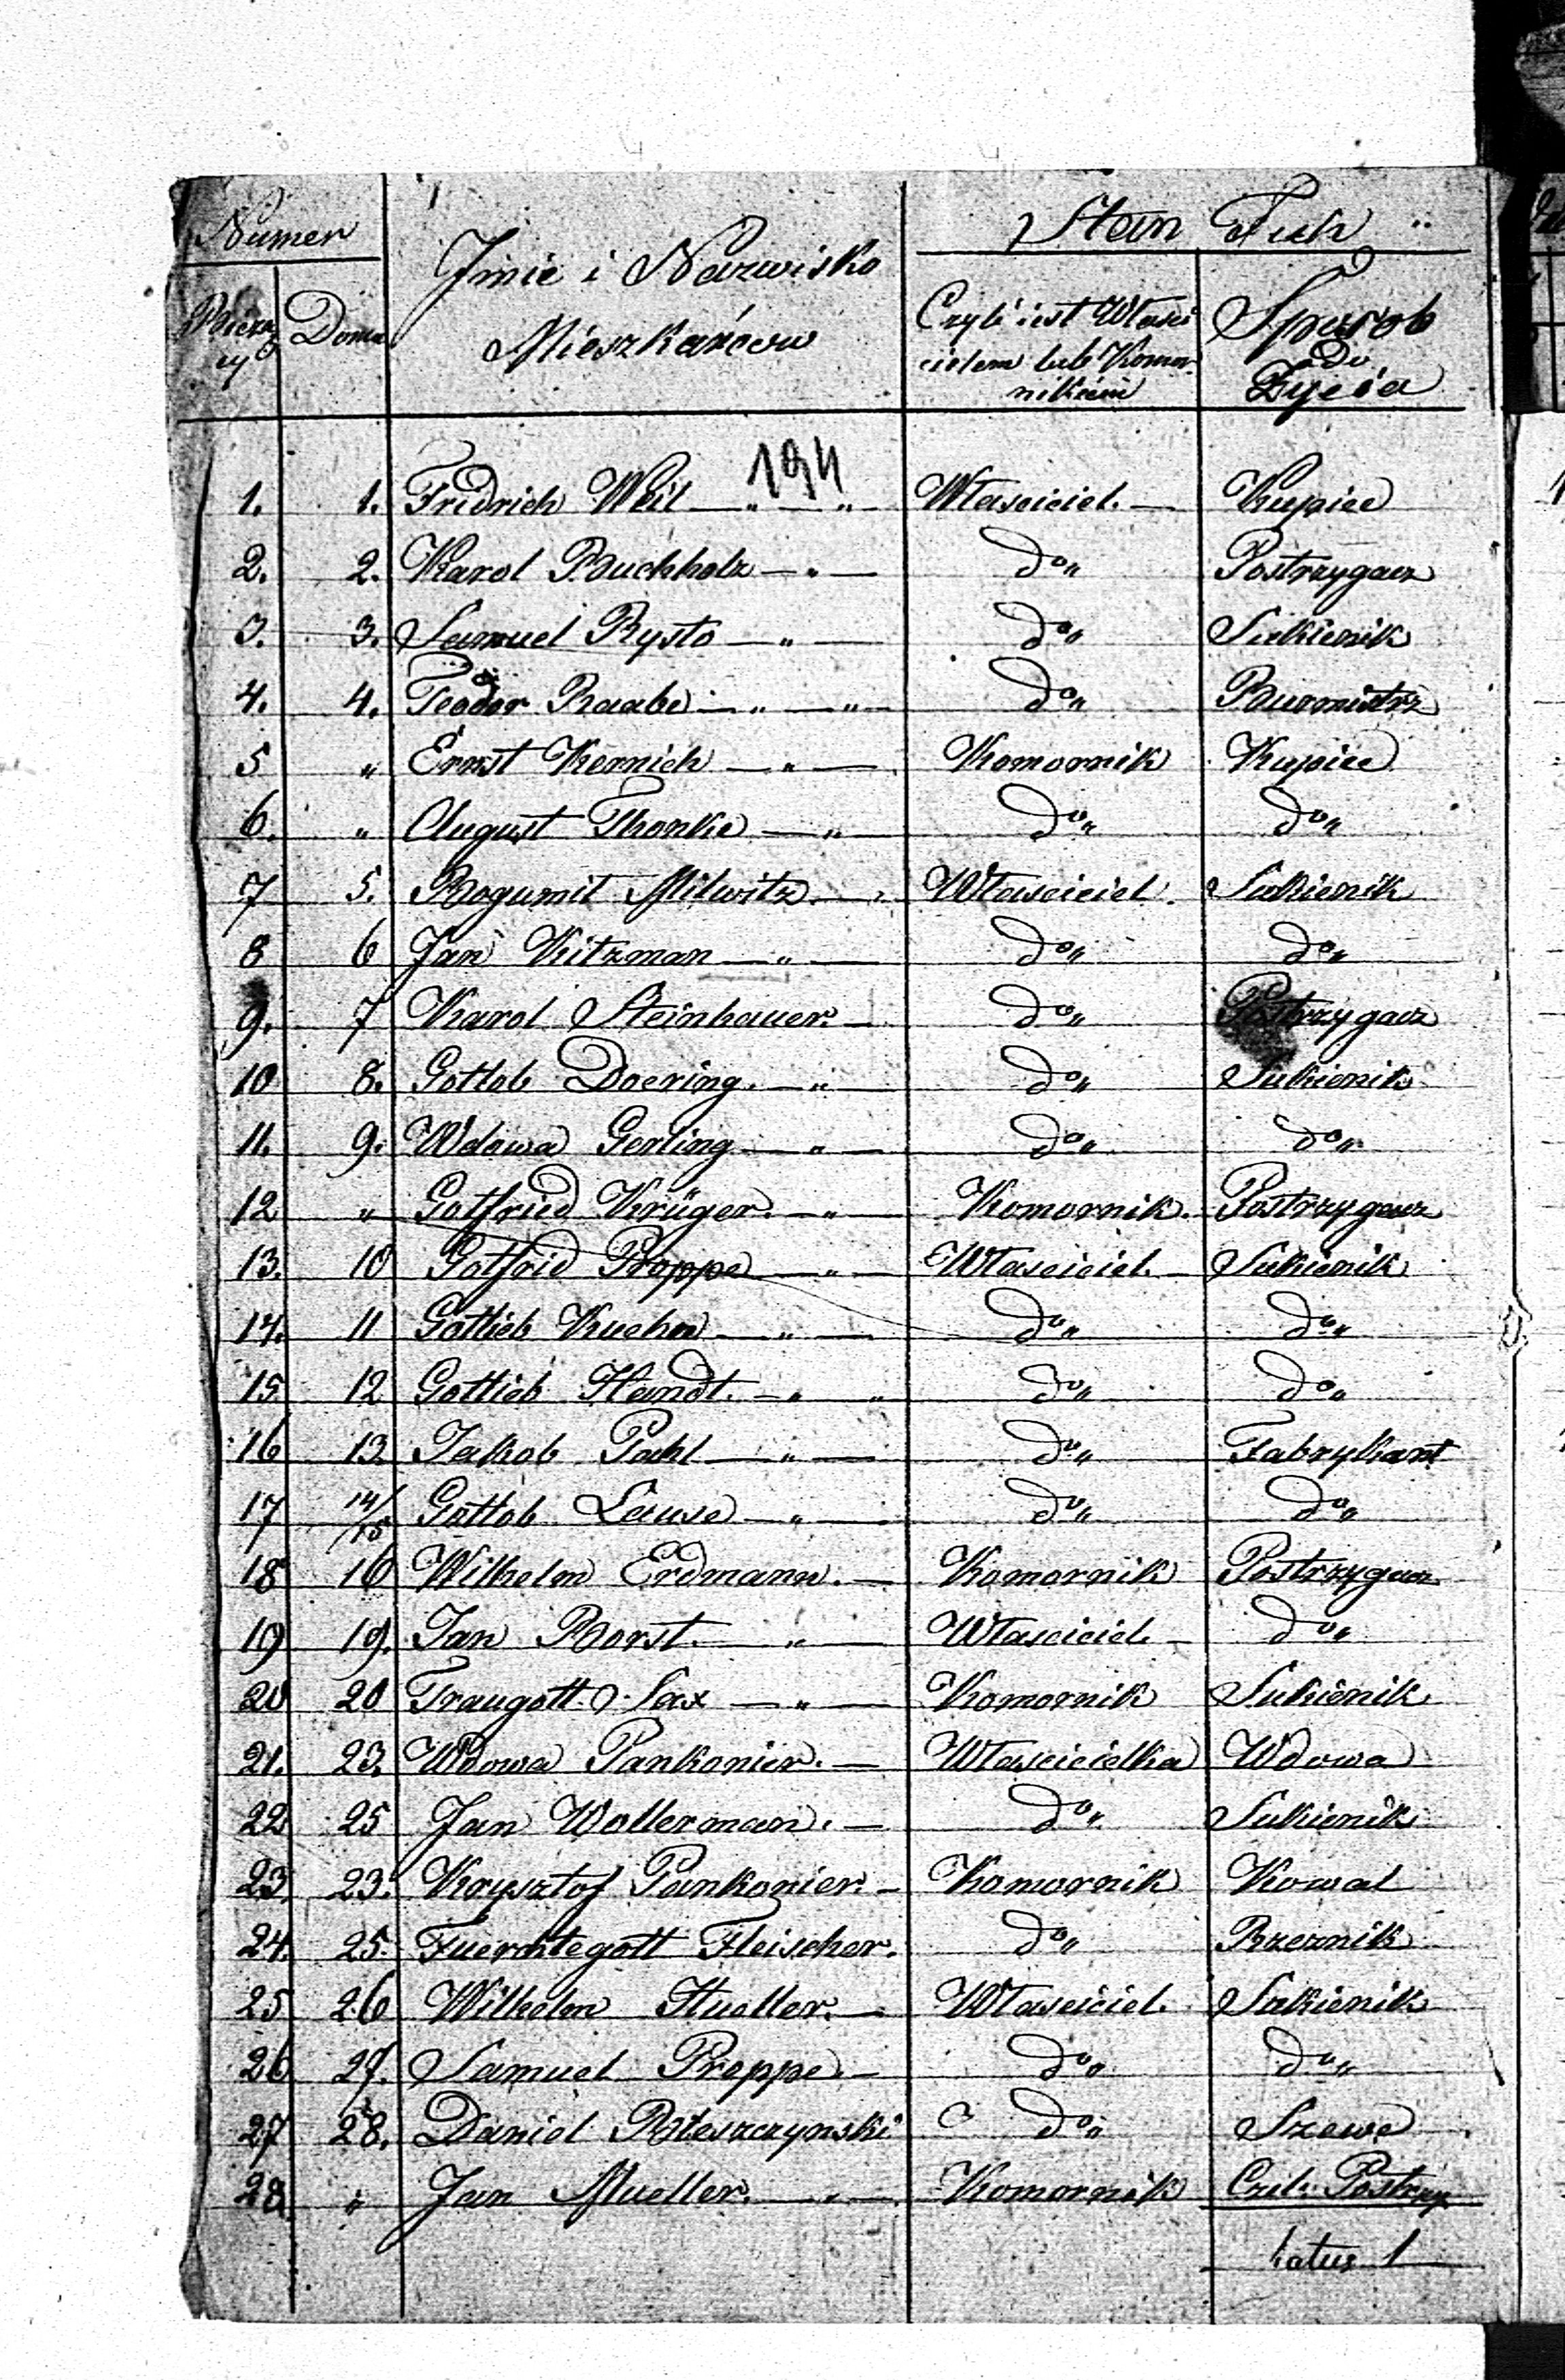 Numer
Stan Ich
Jmie i Nazwisko Mieszkańców
Bieżący
Domu
Czyli iest Właści
cielem lub Komor
nikiem
Sposob
do
Życia
194
1. 1. Fridrich Weil — „ — „ Właściciel. — Kupiec
2. 2. Karol Buchholz — „ — do „ Postrzygacz
3. 3. Samuel Rysto — „ — do „ Sukiennik
4. 4. Teodor Raabe — „ — „ do „ Burmistrz
5 „ Ernst Kernich — „ — Komornik Kupiec
6. „ August Thonke — „ do „ do „
7 5. Bogumił Milwitz — Właściciel. Sukienik
8 6 Jan Kitzman — „ — do „ do „
9. 7 Karol Steinhauer. — do „ Postrzygacz
10 8. Gottob Doering. — „ do „ Sukienik
11. 9. Wdowa Gerling — „ — do „ do „
12 „ Gotfried Krüger. — „ Komornik. Postrzygacz
13. 10 Gotfrid Proppe — „ Właściciel. — Sukienik
14. 11 Gotlieb Kuehn — „ — do „ do „
15 12 Gottlieb Handt. — „ „ do „ do „
16 13. Jakob Pahl — „ — do „ Fabrykant
17 14/15 Gottob Lause — „ do „ do „
18 16 Wilhelm Erdmann. — Komornik Postrzygacz
19 19. Jan Borst — „ — Właściciel. — do „
20 20 Traugott Sax — „ — Komornik Sukienik
21. 23. Wdowa Pankonier. — Właścicielka Wdowa
22 25 Jan Wollerman. — do „ Sukienik
23. 23. Krysztof Pankonier. — Komornik Kowal
24. 25. Fuerchtegott Fleischer. do „ Rzeznik
25 26 Wilhelm Hueller. — Właściciel. Sukienik
26 27. Samuel Proppe — do „ do „
27 28. Daniel Błeszczynski do „ Szewc
28. „ Jan Mueller. — „ — Komornik Czel: Postrzy
Latus 1